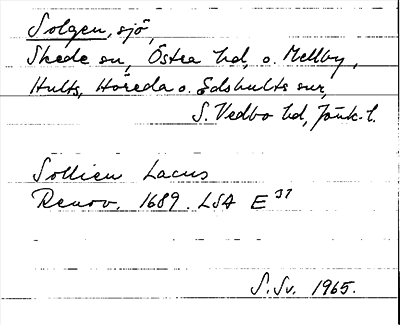 Solgen, sjö,
Skede sn, Östra hd, o. Mellby,
Hults, Höreda o. Edshults snr,
S. Vedbo hd, Jönk. l.
Sollien Lacus
Renov. 1689. LSA E 37
S. Sv. 1965.